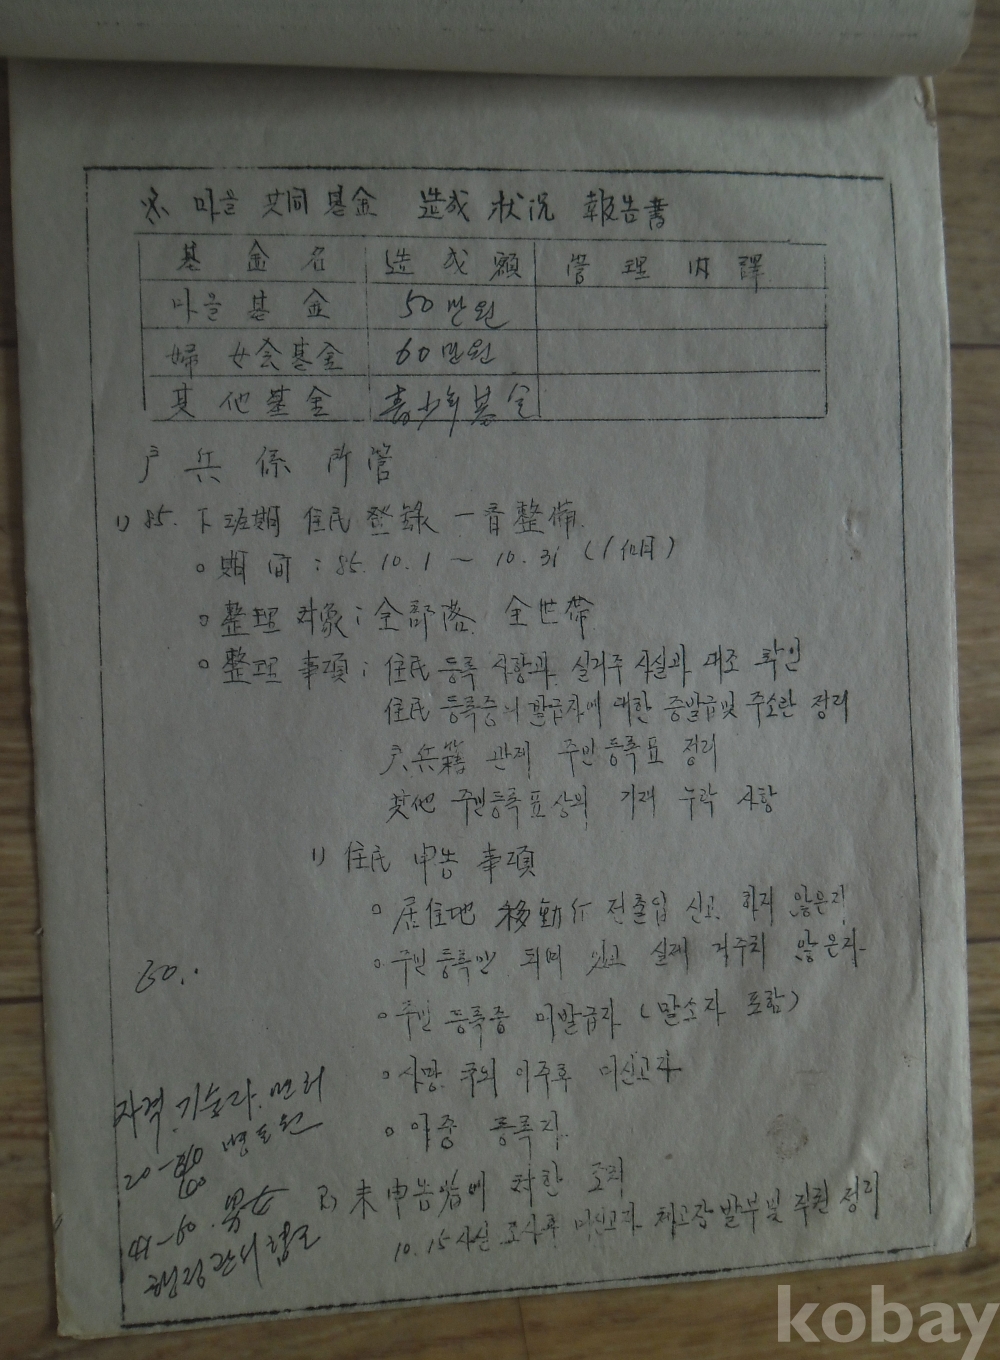 ※ 마을 共同 基金 造成 狀況 報告書
基金名 造成額 管理內譯
마을 基金 50만원
婦女会基金 60만원
其他基金 青少年基金
戶兵係 所管
1) 85. 下班期 住民登錄 一斉整備
○ 期間 : 85. 10. 1 ~ 10. 31 (1個月)
○ 整理 対象 : 全部落 全世帶
○ 整理 事項 : 住民 등록 사항과 실거주 사실과 대조 확인
住民 등록증의 발급자에 대한 증발급및 주소란 정리
戶兵籍 관계 주민등록표 정리
其他 주민등록표상의 기재 누락 사항
1) 住民 申告 事項
○ 居住地 移動 行 전출입 신고 하지 않은자
○ 주민등록만 되여 있고 실제 거주치 않은자
60.
○ 주민 등록증 미발급자 (말소자 포함)
○ 사망. 이주후 미신고자
자격. 기술자. 면허
○ 이중 등록자
20-60
2) 未申告者에 対한 조치
41-60. 男女
10.15 사실 조사후 미신고자 최고장 발부및 직권 정리
행정관서 협조
kobay